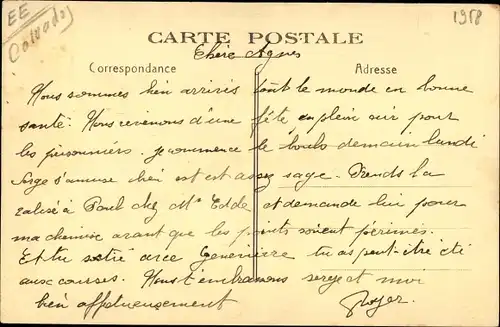 EE
Calvados
1958
CARTE POSTALE
Chère Agnès
Correspondance
Adresse
Nous sommes bien arrivés tout le monde en bonne
santé. Nous revenons d'une fête en plein air pour
les prisonniers. je commence le boulo demain lundi
Serge s'amuse bien est est assez sage. Prends la
valise à Paul chez Mr et demande lui pour
ma chemise avant que les points soient périmés.
Et tu sortie avec Geneviève tu as peut-être été
aux courses. Nous t'embrassons serge et moi
bien affectueusement Roger.